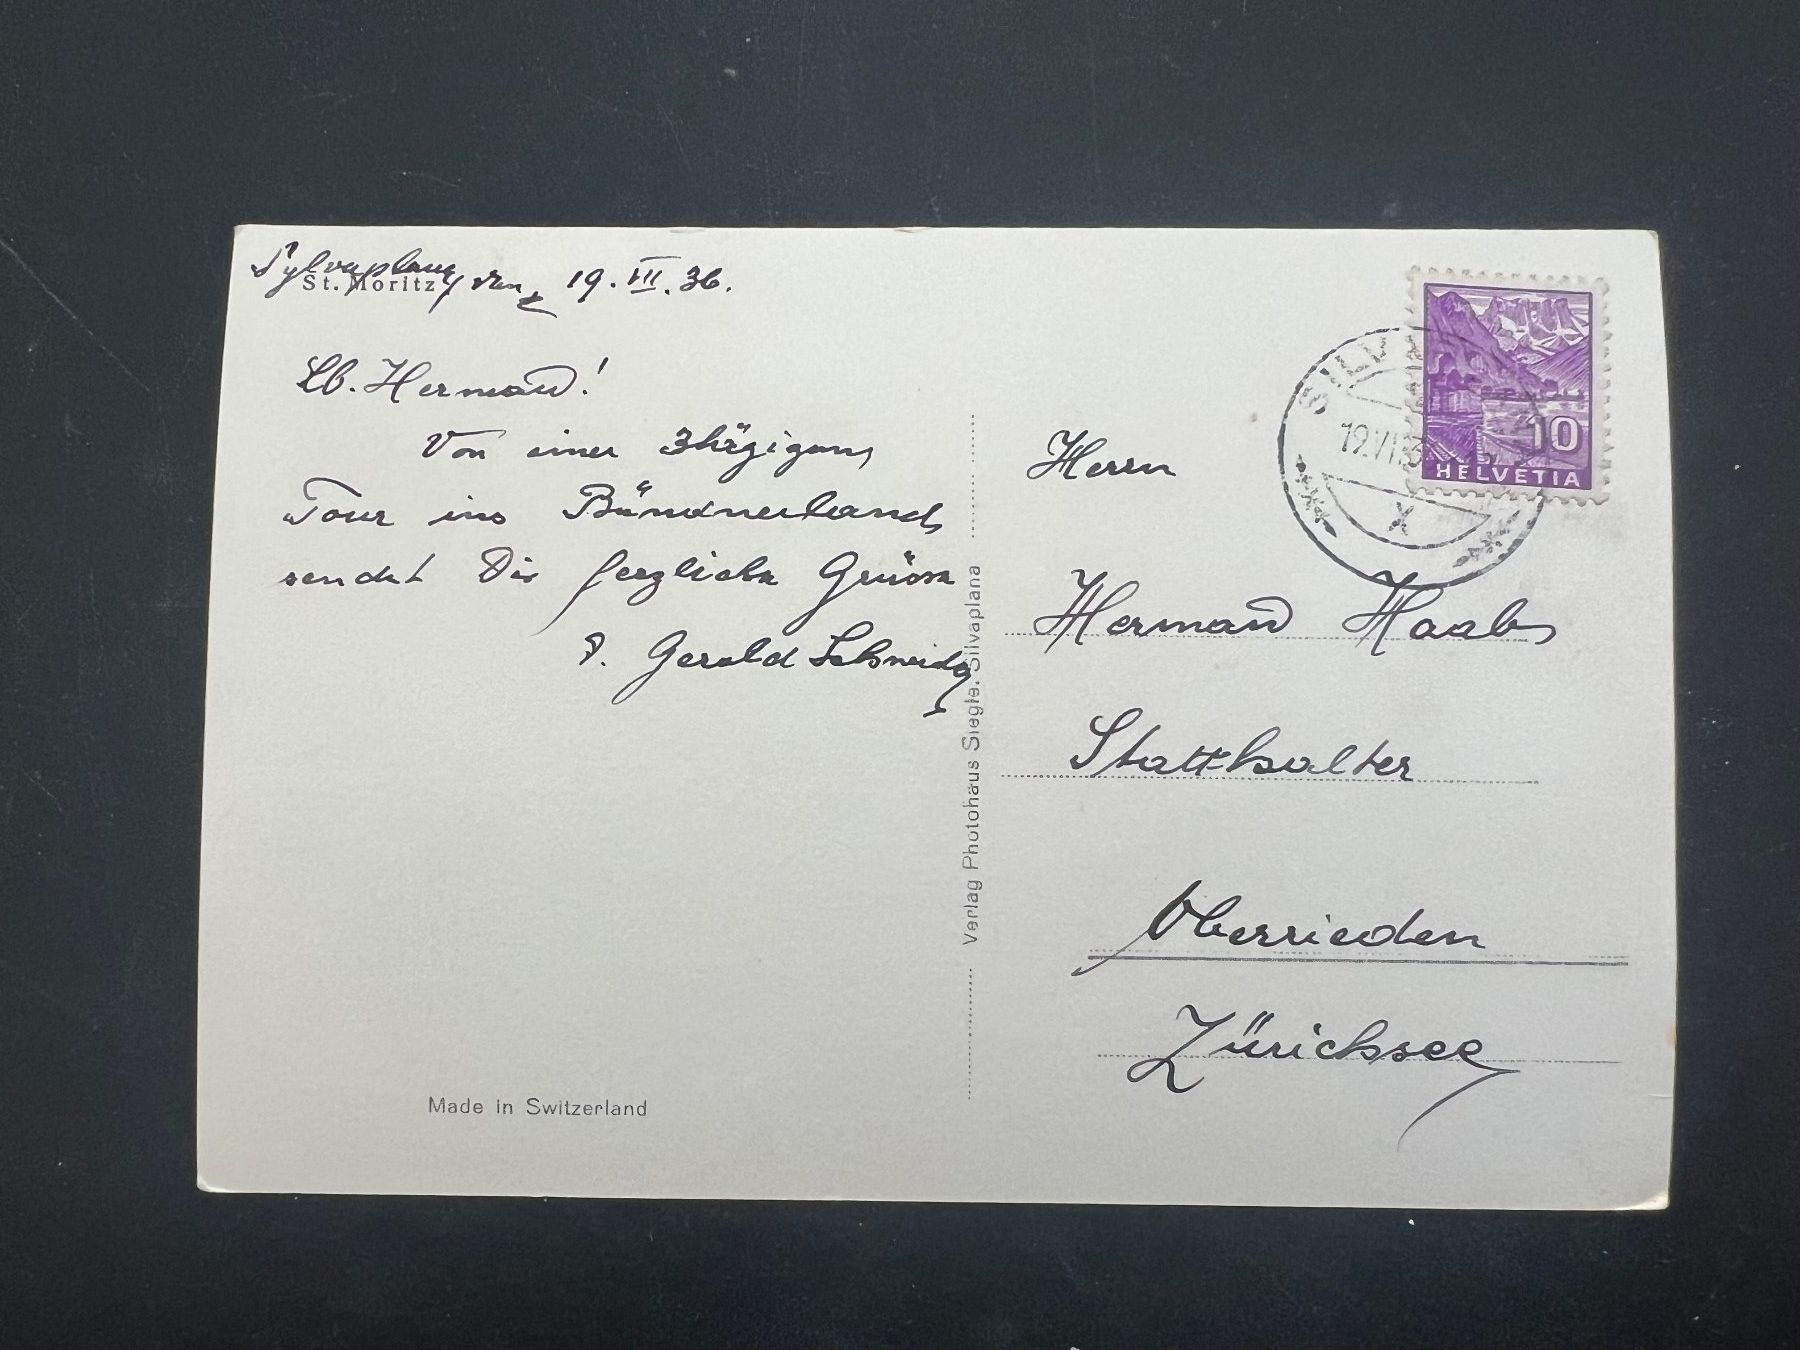 Sylvaplana, den 19. VII. 36.
St. Moritz
Lb. Herman̄!
Von einer 3tägigen
Tour ins Bündnerland
sendet Dir herzliche Grüsse
Gerold Schneider
Verlag Photohaus Siegle, Silvaplana
Made in Switzerland
SILV
19.VII.3
X
10
HELVETIA
Herrn
Herman̄ Haab
Statthalter
Oberrieden
Zürichsee